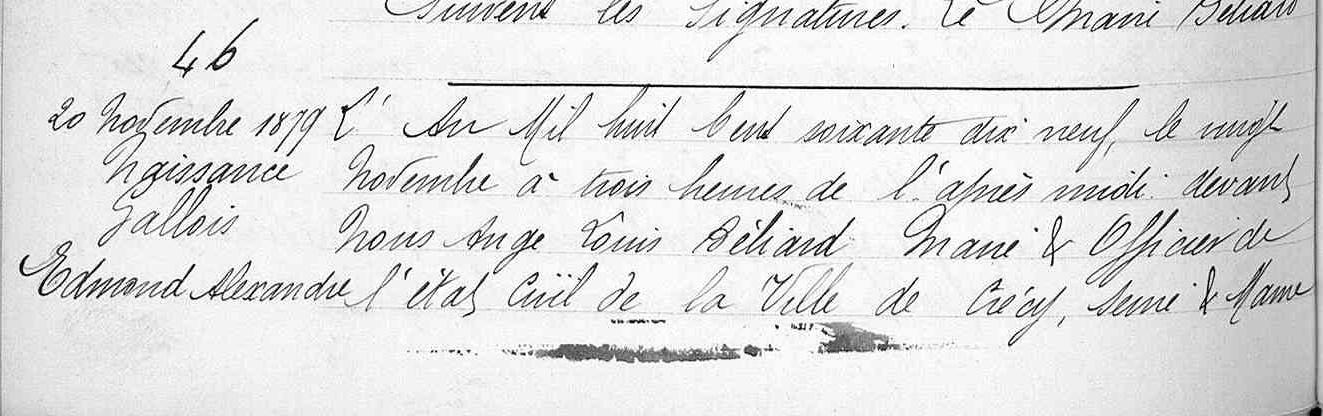 Suivent les Signatures. Le Maire Béliard
46
20 Novembre 1879
Naissance
Gallois
Edmond Alexandre
L'An Mil huit Cent soixante dix neuf, le vingt
Novembre à trois heures de l'après midi devant
Nous Ange Louis Béliard Maire & Officier de
l'état Civil de la Ville de Crécy, Seine & Marne